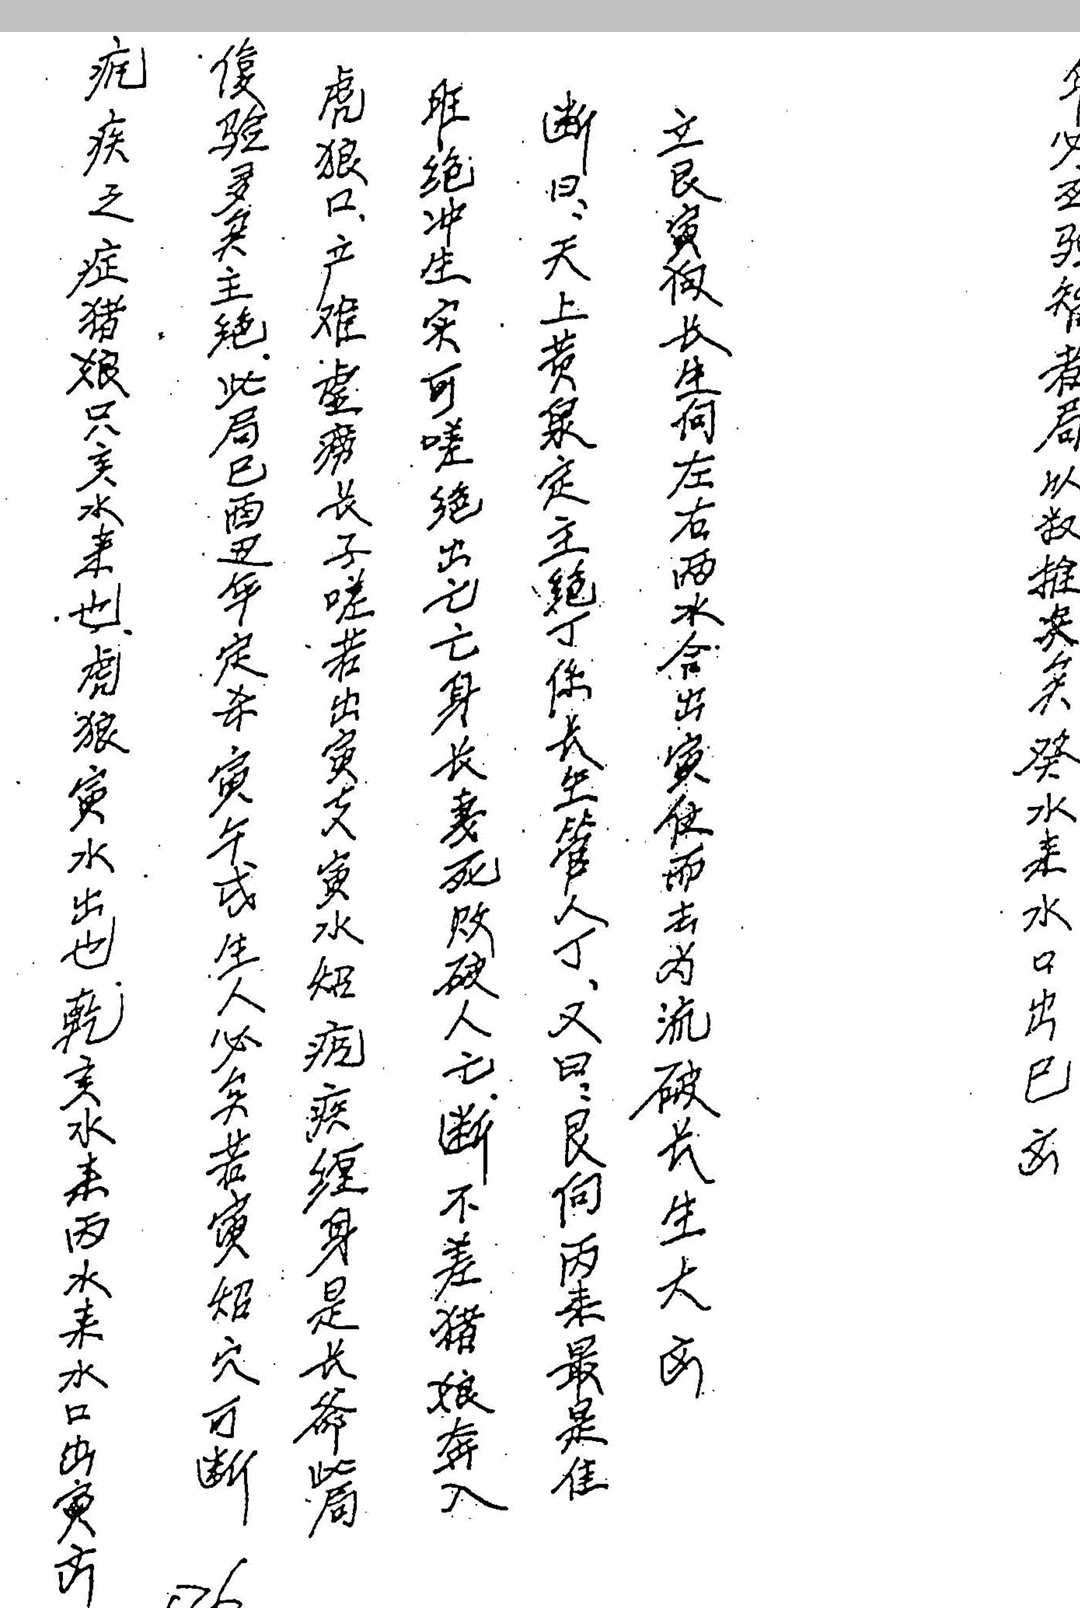 年必丑验智者局以数推炎矣癸水来水口出巳凶
立艮寅向长生向左右两水合出寅位而去为流破长生大凶
断曰:天上黄泉定主绝丁係长生管人丁、又曰:艮向丙来最是佳
旺绝冲生实可嗟绝出亡亡身长妻死败破人亡.断不差猪娘奔入
虎狼口、产难虚痨长子嗟若出寅支寅水炤疯疾缠身是长爺此局
復验多矣主绝.此局巳酉丑年定杀寅午戌生人必矣若寅炤穴可断
疯疾之症猪娘只亥水来也.虎狼寅水出也.乾亥水来丙水来水口出寅凶